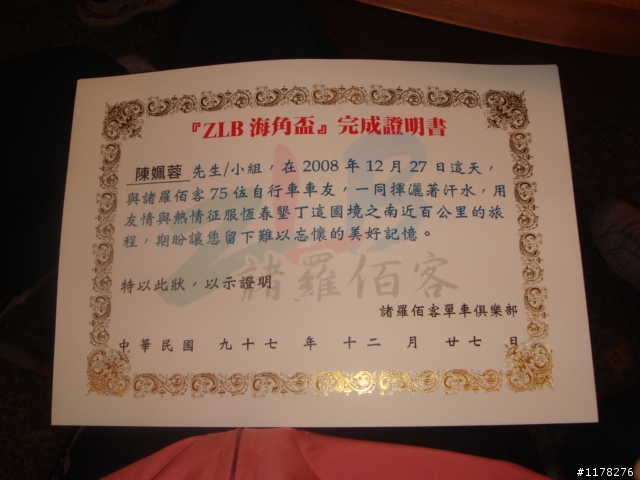 『ZLB 海角盃』完成證明書
陳姵蓉 先生/小組，在 2008 年 12 月 27 日這天，
與諸羅佰客 75 位自行車車友，一同揮灑著汗水，用
友情與熱情征服恆春墾丁這國境之南近百公里的旅
程，期盼讓您留下難以忘懷的美好記憶。
特以此狀，以示證明
諸羅佰客
諸羅佰客單車俱樂部
中華民國 九十七 年 十二 月 廿七 日
#1178276